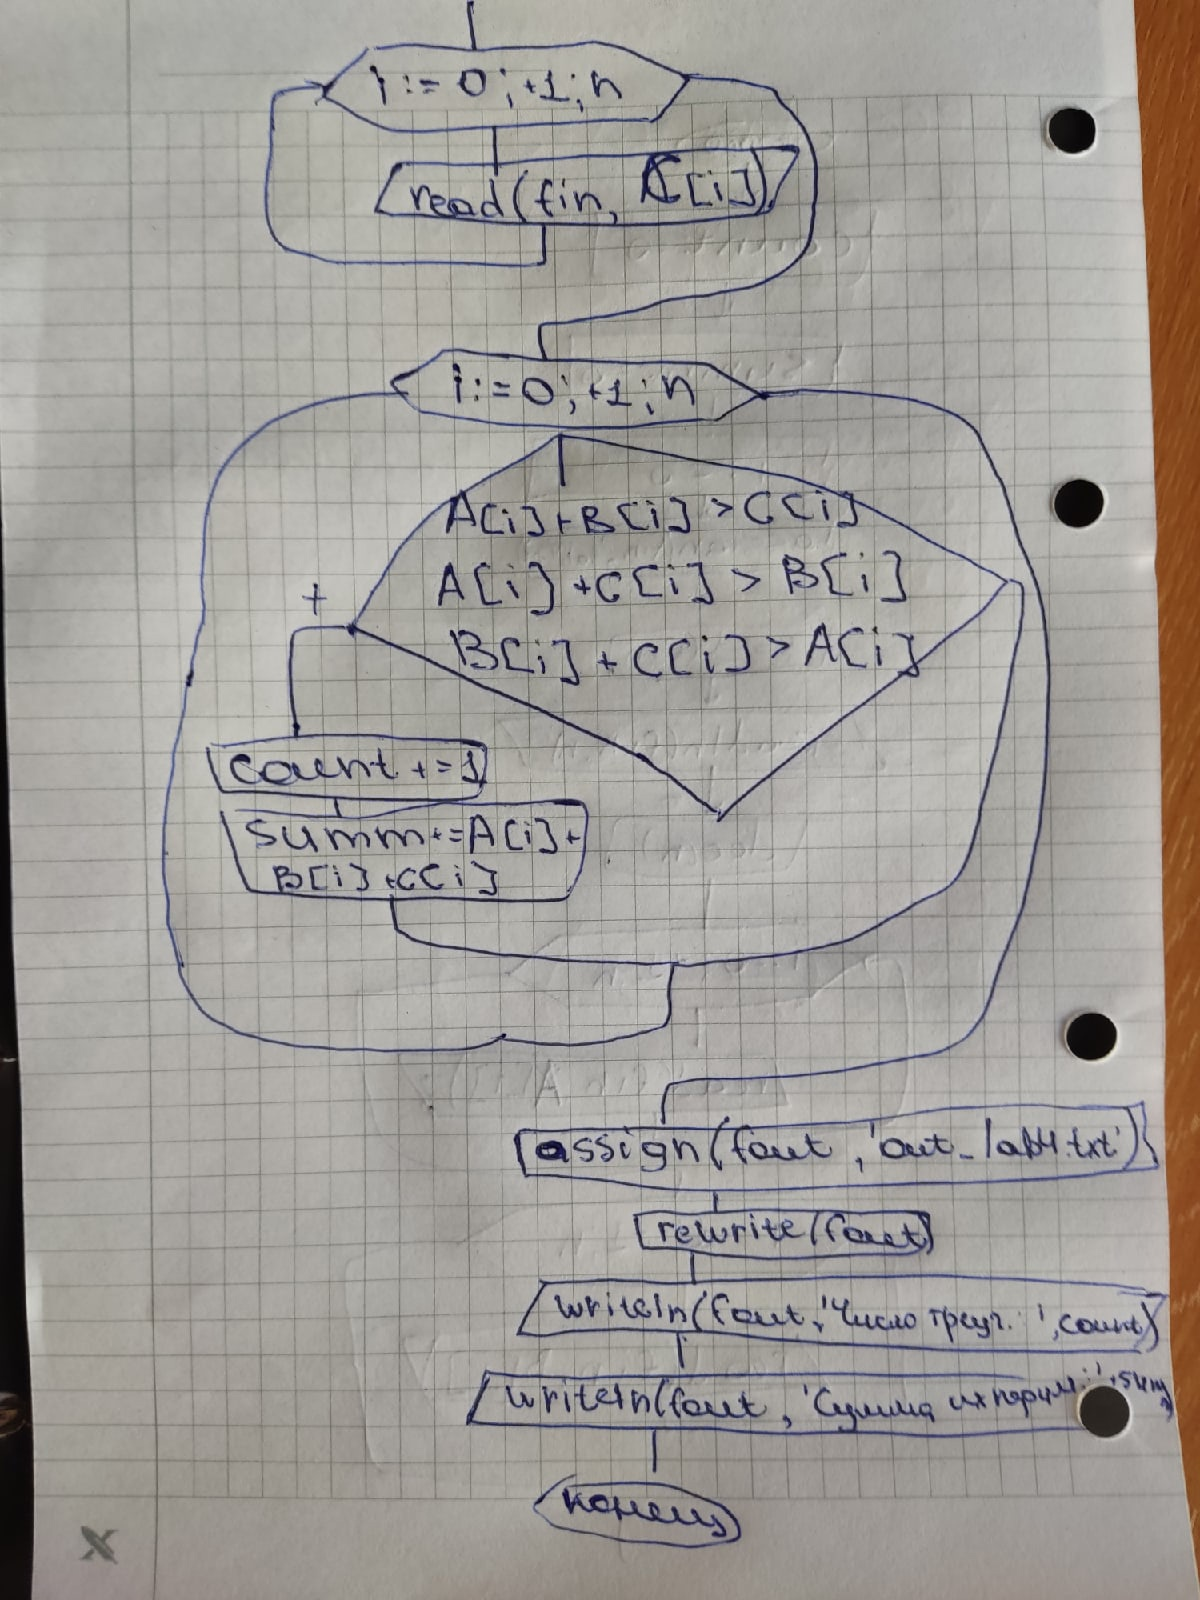 i := 0; +1; n
read(fin, C[i])
i := 0; +1; n
A[i]+B[i] > C[i]
A[i]+C[i] > B[i]
+
B[i]+C[i] > A[i]
count += 1
summ += A[i]+
B[i]+C[i]
assign(fout, 'out_lab4.txt')
rewrite(fout)
writeln(fout, 'Число треуг. ', count)
writeln(fout, 'Сумма их перим.: ',
конец